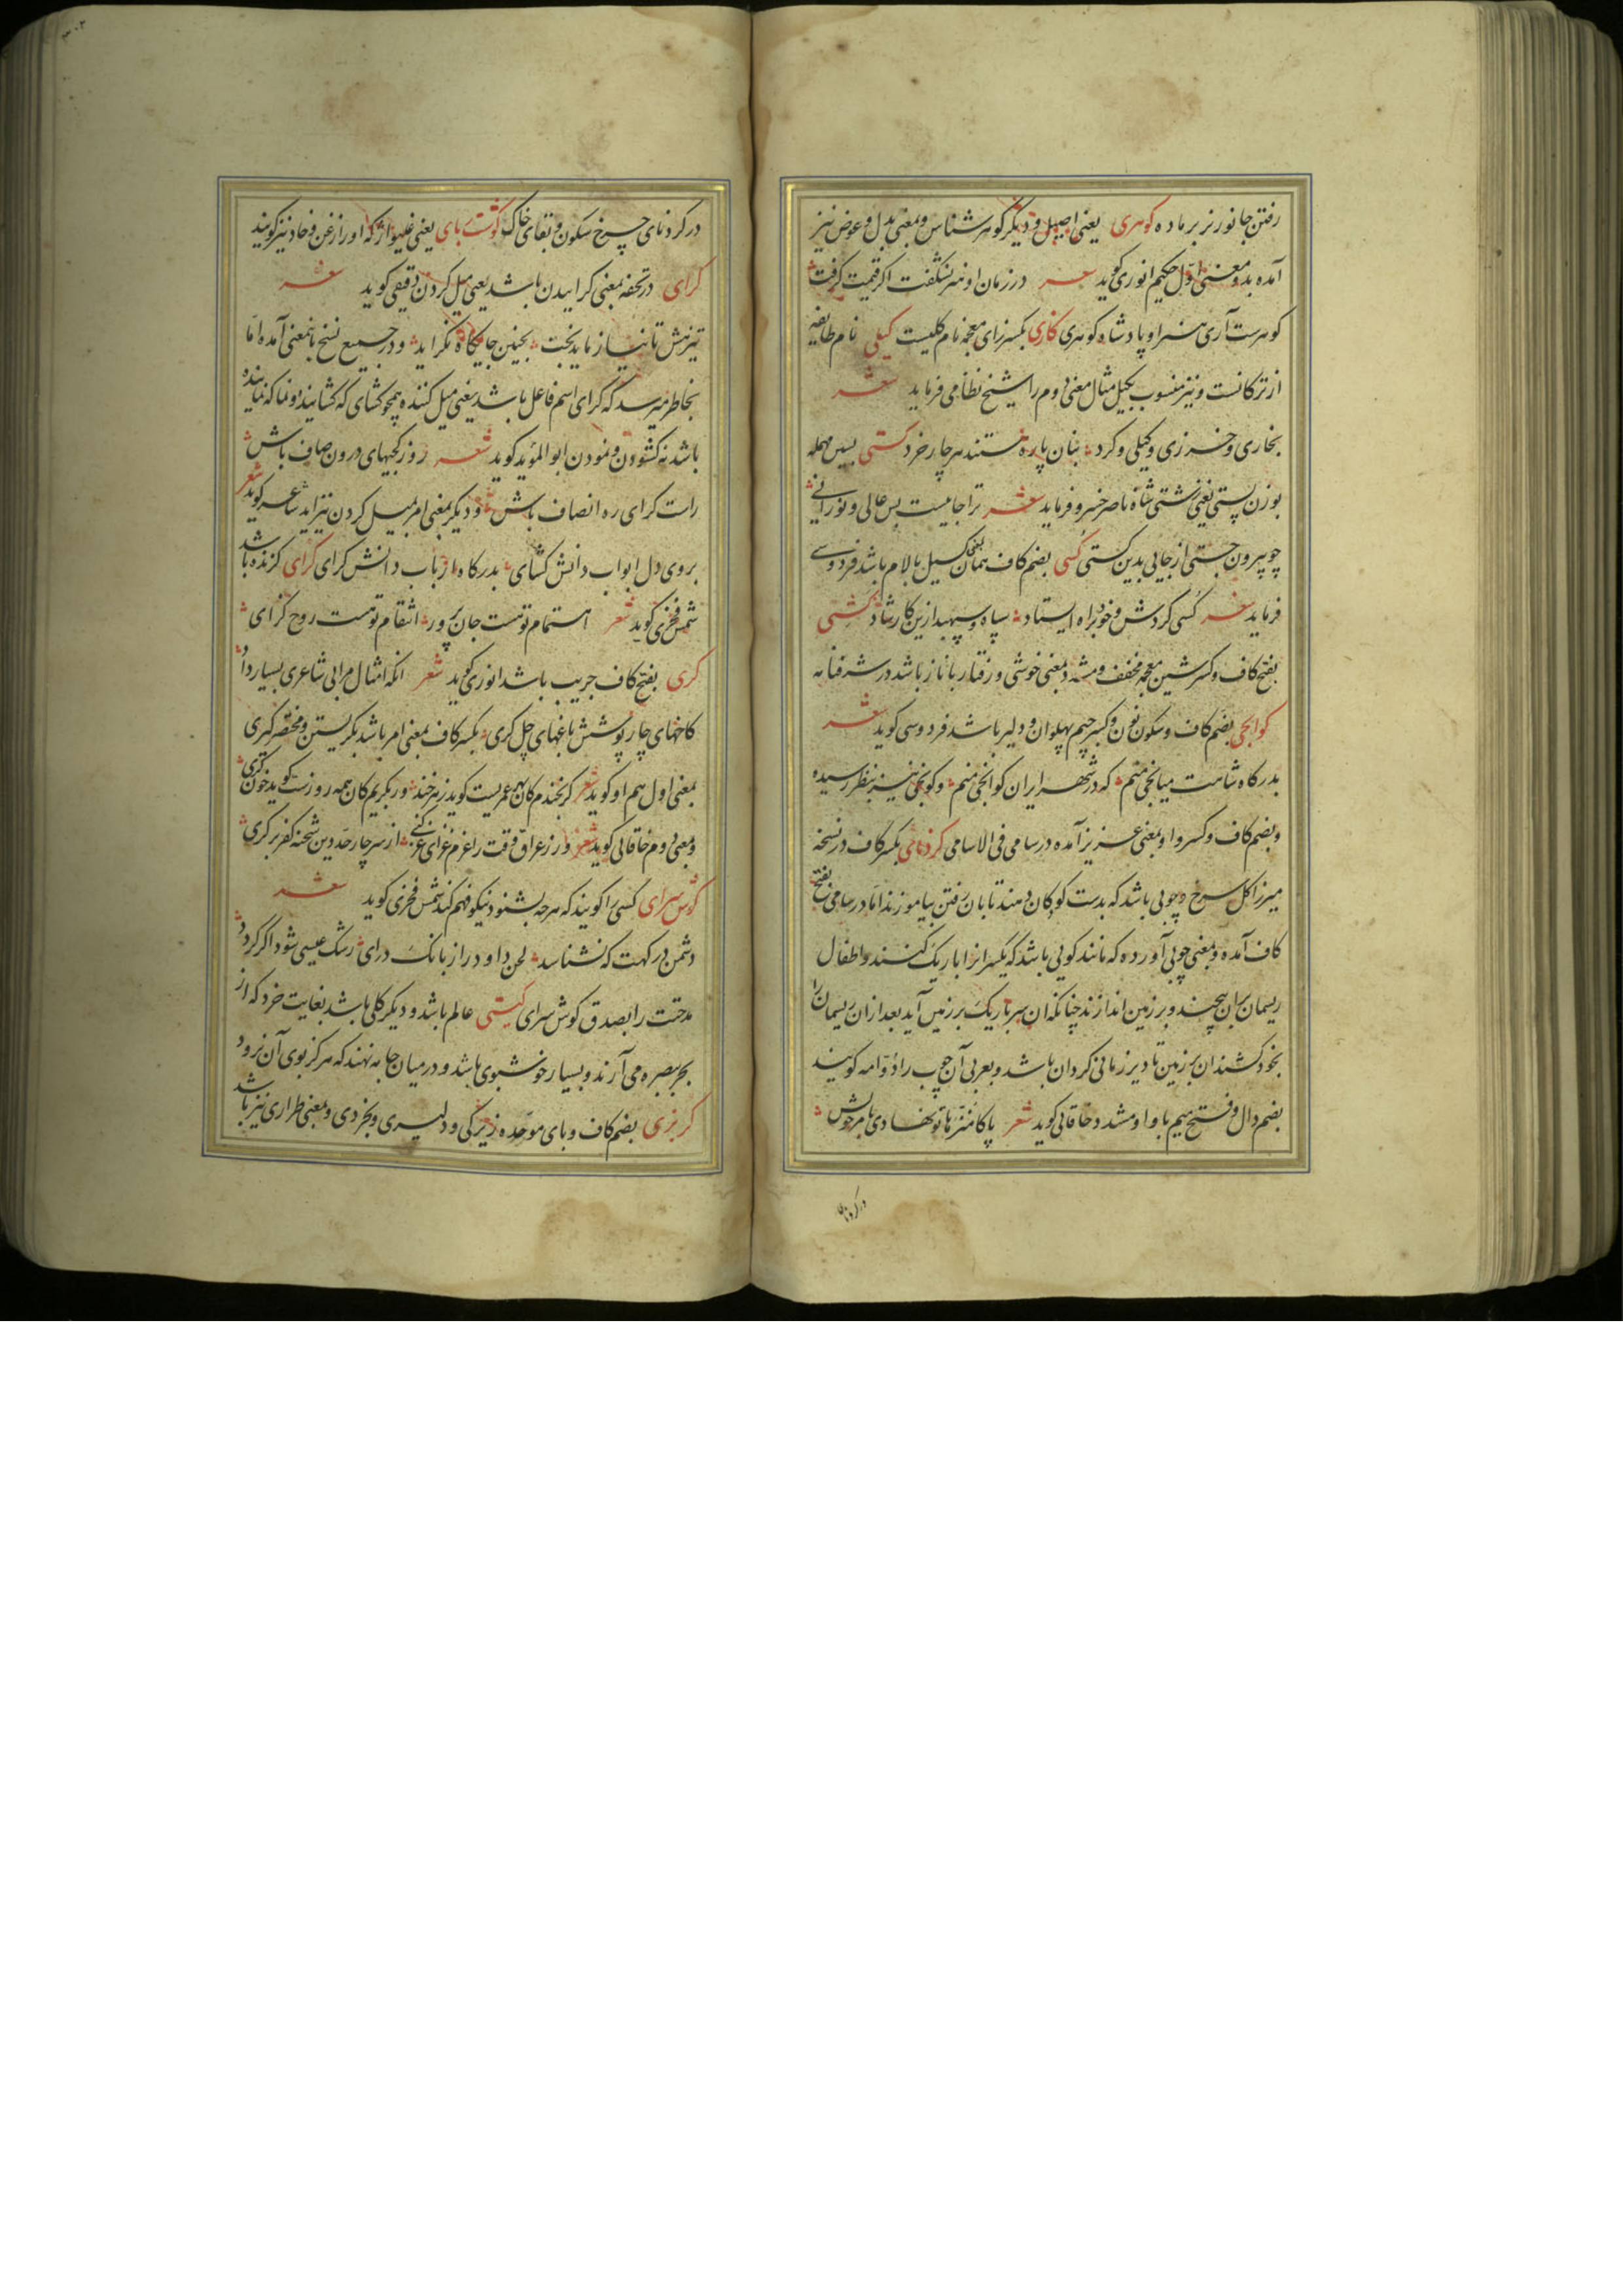 رفتن جانور نر بر ماده کوهری یعنی اصیل و دیگر کوهر شناس و بمعنی بدل و عوض نیز
آمده بدو معنی اول حکیم انوری کوید شعر در زمان او هنر نشکفت اکر قیمت کرفت
کوهرست آری هنر او پادشاه کوهری کازی بکسر زای معجمه نام کلیست کیلی نام طایفه
از ترکانست و نیز منسوب بکیل مثال معنی دوم را شیخ نظامی فرماید شعر
بخاری و خزری و کیلی و کرد بنان پاره هستند هر چار خرد کستی بسین مهمله
بوزن پستی یعنی زشتی شاه ناصر خسرو فرماید شعر ترا جاییست بس عالی و نورانی
چو بیرون جستی از جایی بدین کستی کسی بضم کاف همان کسیل بالام باشد فردوسی
فرماید شعر کسی کردش و خود براه ایستاد سپاه و سپهبد ازین کار شاد کشی
بفتح کاف و کسر شین معجمه مخفف و مشدد بمعنی خوشی و رفتار با ناز باشد در شرفنامه
کوانجی بضم کاف و سکون نون و کسر جیم پهلوان و دلیر باشد فردوسی کوید شعر
بدرکاه شاهت میانجی منم که در شهر ایران کوانجی منم و کونجی نیز بنظر رسیده
و بضم کاف و کسر واو بمعنی عزیز آمده در سامی فی الاسامی کردنای بکسر کاف در نسخه
میرزا کل سرخ و چوبی باشد که بدست کودکان دهند تا بان رفتن بیاموزند اما در سامی بفتح
کاف آمده و بمعنی چوبی آورده که مانند کویی باشد که یکسر انرا باریک کنند و اطفال
ریسمان بران پیچند و بر زمین اندازند چنانکه ان سر باریک بر زمین آید بعد ازان ریسمان را
بخود کشند ان بر زمین تا دیر زمانی کردان باشد و بعربی آن چوب را دوامه کویند
بضم دال و فتح میم با واو مشدد خاقانی کوید شعر پاکا منزها تو نهادی بامر خویش
در کردنای
در کردنای چرخ سکون و بقای خاک کوشت ربای یعنی غلیواژ که او را زغن و خاد نیز کویند
کرای در تحفه بمعنی کراییدن باشد یعنی میل کردن دقیقی کوید شعر
تیزهش تا نیازماید بخت بچنین جایکاه نکراید و در جمیع نسخ باینمعنی آمده اما
بخاطر میرسد که کرای اسم فاعل باشد یعنی میل کننده همچو کشای که کشاینده و نما که نماینده
باشد نه کشودن و نمودن ابو المؤید کوید شعر روز کجیهای درون صاف باش
راست کرای ره انصاف باش و دیکر بمعنی امر بمیل کردن نیز اید شاعر کوید شعر
بروی دل ابواب دانش کشای بدرکاه ارباب دانش کرای کزای کزنده باشد
شمس فخری کوید شعر اهتمام توست جان پرور انتقام توست روح کزای
کری بفتح کاف جریب باشد انوری کوید شعر انکه امثال مرا بی شاعری بسیار داد
کاخهای چار پوشش باغهای چل کری بکسر کاف بمعنی امر باشد بکریستن و مختصر کیری
بمعنی اول هم او کوید شعر کر بخندم کان بهر عمریست کوید زهر خند ور بکریم کان همه روزست کوید خون کری
و بمعنی دوم خاقانی کوید شعر ور ز عراق وقت را عزم غزای غز کنی از سر چار حد دین شحنه کفر بر کری
کوش سرای کسی را کویند که هر چه بشنود نیکو فهم کند شمس فخری کوید شعر
دشمن در کهت که نشناسد لحن داود را ز بانک درای رشک عیسی شود اکر کردد
مدحتت را بصدق کوش سرای کیتی عالم باشد و دیکر کلی باشد بغایت خرد که از
بحر بصره می آرند و بسیار خوشبوی باشد و در میان جامه نهند که هرکز بوی آن نرود
کربزی بضم کاف و بای موحده زیرکی و دلیری و بخردی و بمعنی طراری نیز باشد